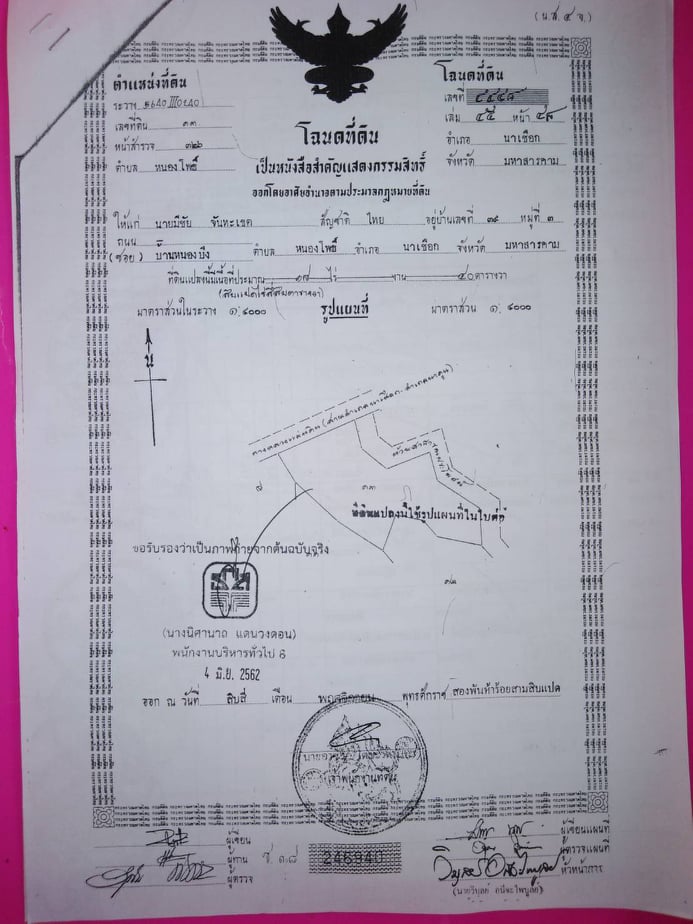 (น.ส. ๔ จ.)
ตำแหน่งที่ดิน
ระวาง 5640 III 0240
เลขที่ดิน ๓๓
หน้าสำรวจ ๓๒๖
ตำบล หนองโพธิ์
โฉนดที่ดิน
เลขที่ ๔๔๔๘
เล่ม ๔๕ หน้า ๔๘
อำเภอ นาเชือก
จังหวัด มหาสารคาม
โฉนดที่ดิน
เป็นหนังสือสำคัญแสดงกรรมสิทธิ์
ออกโดยอาศัยอำนาจตามประมวลกฎหมายที่ดิน
ให้แก่ นายมีชัย จันทะเขต สัญชาติ ไทย อยู่บ้านเลขที่ ๓๙ หมู่ที่ ๓
ถนน
(ซอย) บ้านหนองบึง ตำบล หนองโพธิ์ อำเภอ นาเชือก จังหวัด มหาสารคาม
ที่ดินแปลงนี้มีเนื้อที่ประมาณ ๑๘ ไร่ งาน ๔๐ ตารางวา
(สิบแปดไร่สี่สิบตารางวา)
มาตราส่วนในระวาง ๑:๔๐๐๐ รูปแผนที่ มาตราส่วน ๑:๔๐๐๐
น
ทางหลวงแผ่นดิน (สายอำเภอนาเชือก-อำเภอนาดูน)
ห้วยสาธารณประโยชน์
๓๓
ที่ดินแปลงนี้ใช้รูปแผนที่ในใบต่อ
ขอรับรองว่าเป็นภาพถ่ายจากต้นฉบับจริง
(นางนิศานาถ แดนวงดอน)
พนักงานบริหารทั่วไป 6
4 มิ.ย. 2562
ออก ณ วันที่ สิบสี่ เดือน พฤศจิกายน พุทธศักราช สองพันห้าร้อยสามสิบแปด
เจ้าพนักงานที่ดิน
ผู้เขียน
ผู้ทาน
ผู้ตรวจ
246940
ผู้เขียนแผนที่
ผู้ตรวจแผนที่
หัวหน้าการ
(นายวิบุลย์ อนีจะไพบูลย์)